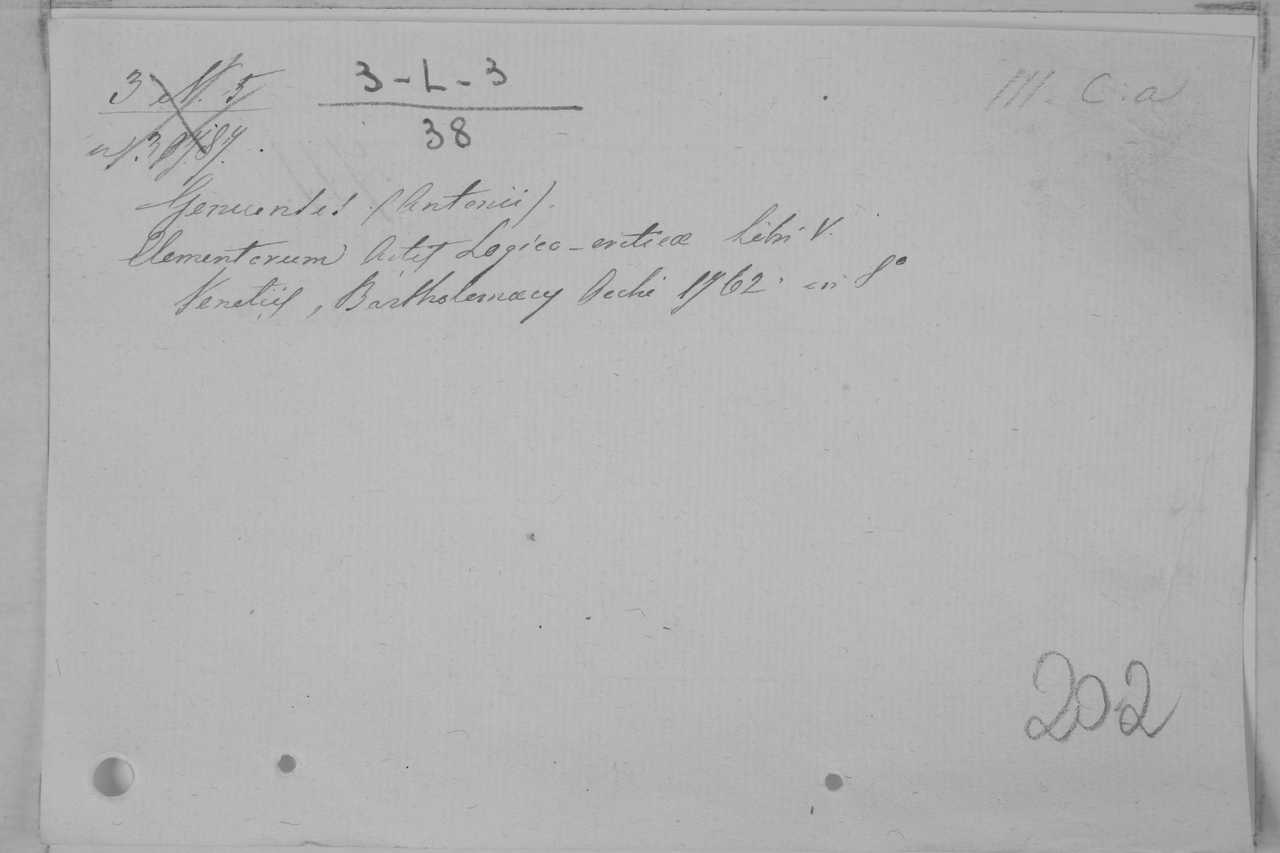 3 N. 5
3-L-3
38
III. C. a
Genuensis (Antonii).
Elementorum Artis Logico-criticæ Libri V.
Venetiis, Bartholomæus 1762. in 8°
202